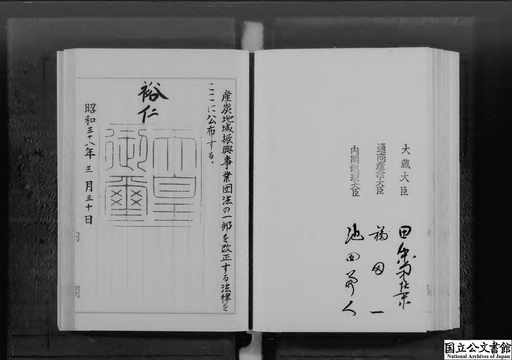 大蔵大臣 田中角榮
通商産業大臣 福田 一
内閣総理大臣 池田勇人
産炭地域振興事業団法の一部を改正する法律を
ここに公布する。
裕仁
天皇
御璽
昭和三十八年三月三十日
国立公文書館
National Archives of Japan